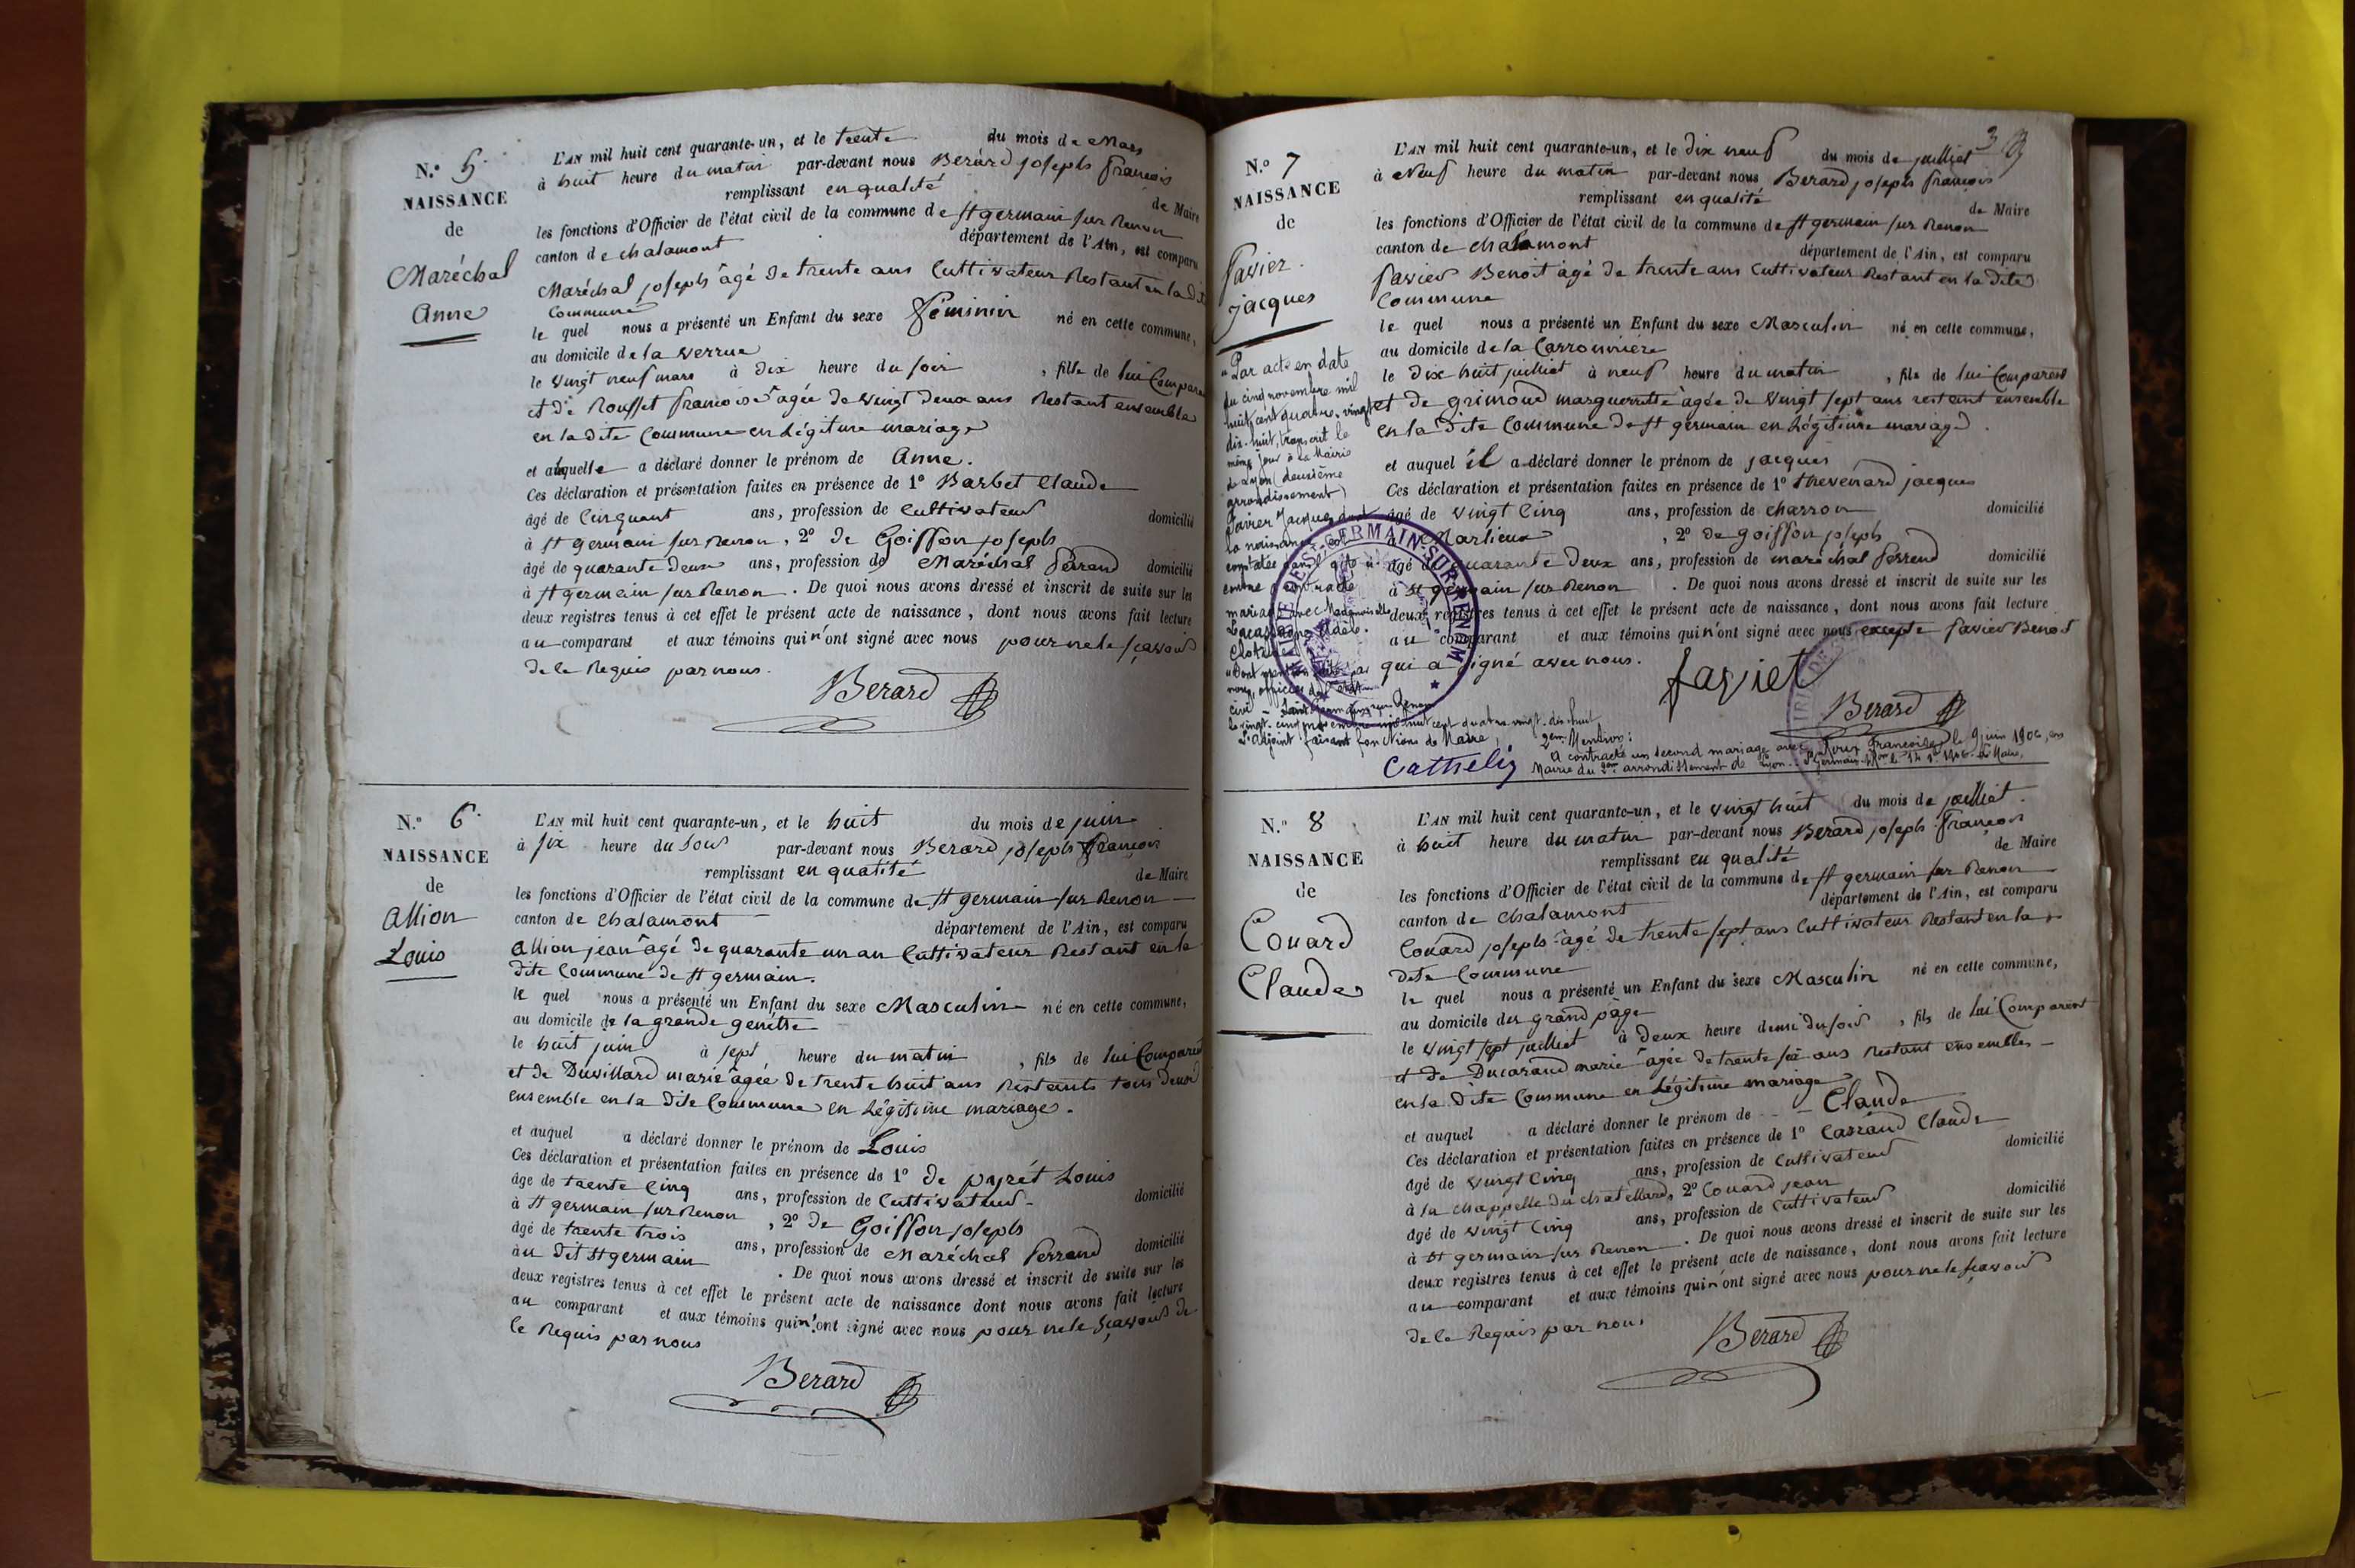 N.° 5.
NAISSANCE
de
Maréchal
Anne
L'AN mil huit cent quarante-un, et le trente du mois de Mars
à huit heure du matin par-devant nous Berard joseph françois
remplissant en qualité de Maire
les fonctions d'Officier de l'état civil de la commune de st germain sur Renon
canton de chalamont département de l'Ain, est comparu
Maréchal joseph âgé de trente ans Cultivateur Restant en la dite
Commune
le quel nous a présenté un Enfant du sexe féminin né en cette commune,
au domicile de la verrue
le vingt neuf mars à dix heure du soir, fille de lui Comparant
et de Rousset françoise âgée de vingt deux ans Restant ensemble
en la dite Commune en Légitime mariage
et a laquelle a déclaré donner le prénom de Anne.
Ces déclaration et présentation faites en présence de 1° Barbet Claude
âgé de Cinquant ans, profession de Cultivateur domicilié
à st germain sur Renon, 2° de Goiffon joseph
âgé de quarante deux ans, profession de Maréchal ferrand domicilié
à st germain sur Renon. De quoi nous avons dressé et inscrit de suite sur les
deux registres tenus à cet effet le présent acte de naissance, dont nous avons fait lecture
au comparant et aux témoins qui n'ont signé avec nous pour ne le sçavoir
de le Requis par nous.
Berard
N.° 6.
NAISSANCE
de
Allion
Louis
L'AN mil huit cent quarante-un, et le huit du mois de juin
à six heure du soir par-devant nous Berard joseph françois
remplissant en qualité de Maire
les fonctions d'Officier de l'état civil de la commune de st germain sur Renon
canton de Chalamont département de l'Ain, est comparu
Allion jean âgé de quarante un an Cultivateur Restant en la
dite Commune de st germain.
le quel nous a présenté un Enfant du sexe Masculin né en cette commune,
au domicile de la grande
le huit juin à sept heure du matin, fils de lui Comparent
et de Duvillard marie âgée de trente huit ans Restants tous deux
ensemble en la dite Commune en Légitime mariage.
et auquel a déclaré donner le prénom de Louis
Ces déclaration et présentation faites en présence de 1° de pyrét Louis
âgé de trente Cinq ans, profession de Cultivateur domicilié
à st germain sur Renon, 2° de Goiffon joseph
âgé de trente trois ans, profession de Maréchal ferrand domicilié
au dit st germain. De quoi nous avons dressé et inscrit de suite sur les
deux registres tenus à cet effet le présent acte de naissance dont nous avons fait lecture
au comparant et aux témoins qui n'ont signé avec nous pour ne le sçavoir de
le Requis par nous
Berard
3
N.° 7
NAISSANCE
de
favier
jacques
L'AN mil huit cent quarante-un, et le dix neuf du mois de juilliet
à Neuf heure du matin par-devant nous Berard joseph françois
remplissant en qualité de Maire
les fonctions d'Officier de l'état civil de la commune de st germain sur Renon
canton de chalamont département de l'Ain, est comparu
favier Benoit âgé de trente ans Cultivateur Restant en la dite
Commune
le quel nous a présenté un Enfant du sexe Masculin né en cette commune,
au domicile de la Carronnière
le dix huit juilliet à neuf heure du matin, fils de lui Comparent
et de grimoud marguerritte âgée de vingt sept ans restant ensemble
en la dite Commune de st germain en Légitime mariage.
et auquel il a déclaré donner le prénom de jacques
Ces déclaration et présentation faites en présence de 1° thevenard jacques
âgé de vingt Cinq ans, profession de charron domicilié
à Marlieux, 2° de goiffon joseph
âgé de quarante deux ans, profession de maréchal ferrend domicilié
à st germain sur Renon. De quoi nous avons dressé et inscrit de suite sur les
deux registres tenus à cet effet le présent acte de naissance, dont nous avons fait lecture
au comparant et aux témoins qui n'ont signé avec nous excepte favier Benoit
qui a signé avec nous.
favier
Berard
"Par acte en date
du cinq novembre mil
huit cent quatre-vingt
dix-huit, transcrit le
même jour à la Mairie
de Lyon (deuxième
arrondissement)
Favier Jacques dont
la naissance est
constatée dans l'acte ci-
contre a contracté
mariage avec Mademoiselle
Lacassagne Adèle
Clotilde
"Dont mention faite par
nous, officier de l'état
civil Saint Germain sur Renon
le vingt-cinq novembre mil huit cent quatre-vingt-dix-huit
L'adjoint faisant fonctions de Maire,
Cathelin
2ème Mention:
A contracté un second mariage avec Roux Françoise, le 9 juin 1906, en
Mairie du 2ème arrondissement de Lyon. St Germain
MAIRIE DE ST-GERMAIN-SUR-RENON
N.° 8
NAISSANCE
de
Couard
Claude
L'AN mil huit cent quarante-un, et le vingt huit du mois de juilliet.
à huit heure du matin par-devant nous Berard joseph françois
remplissant en qualité de Maire
les fonctions d'Officier de l'état civil de la commune de st germain sur Renon
canton de chalamont département de l'Ain, est comparu
Couard joseph âgé de trente sept ans Cultivateur Restant en la
dite Commune
le quel nous a présenté un Enfant du sexe Masculin né en cette commune,
au domicile du grand page
le vingt sept juilliet à deux heure demi du soir, fils de lui Comparent
et de Ducarand marie âgée de trente six ans Restant ensembles
en la dite Commune en Légitime mariage
et auquel a déclaré donner le prénom de Claude
Ces déclaration et présentation faites en présence de 1° Carraud Claude
âgé de vingt Cinq ans, profession de Cultivateur domicilié
à la chappelle du chatellard, 2° Couard jean
âgé de vingt Cinq ans, profession de Cultivateur domicilié
à st germain sur Renon. De quoi nous avons dressé et inscrit de suite sur les
deux registres tenus à cet effet le présent acte de naissance, dont nous avons fait lecture
au comparant et aux témoins qui n'ont signé avec nous pour ne le sçavoir
de le Requis par nous
Berard